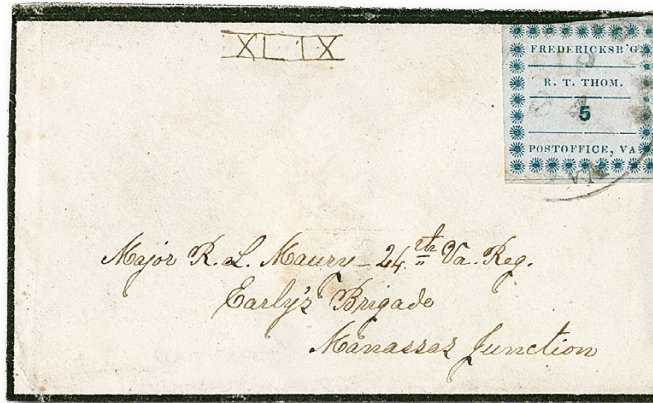 XLIX
FREDERICKSB'G
R. T. THOM.
5
POSTOFFICE, VA
Major R. L. Maury - 24th Va. Reg.
Early's Brigade
Manassas Junction